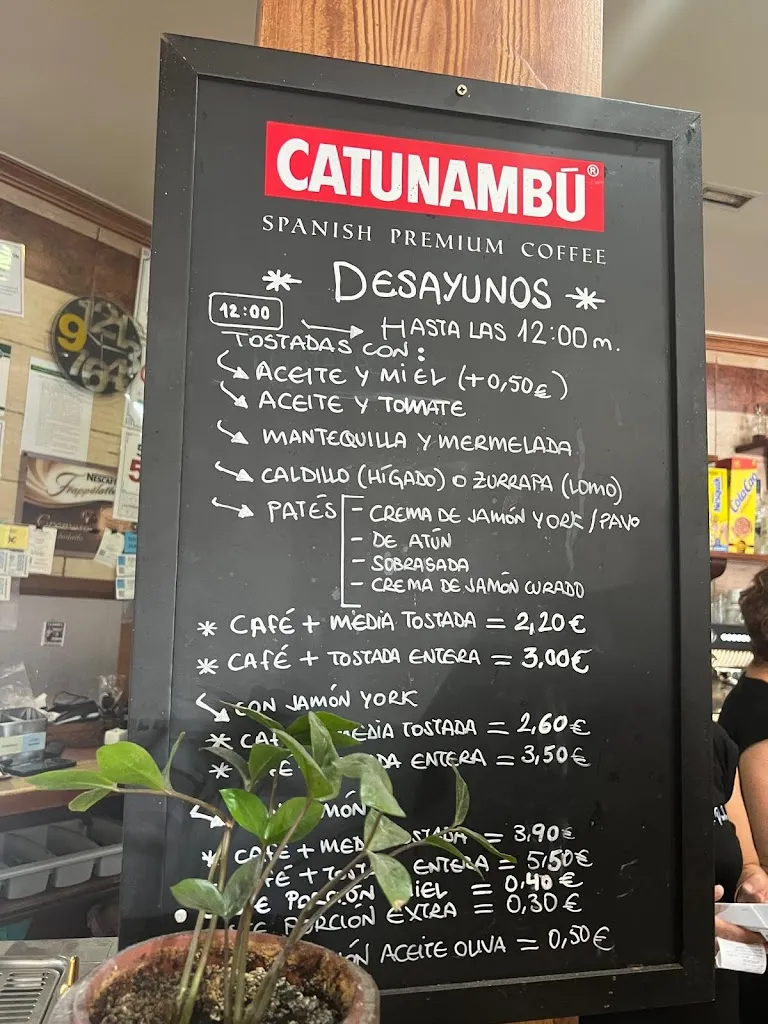 CATUNAMBÚ®
SPANISH PREMIUM COFFEE
* DESAYUNOS *
12:00 → HASTA LAS 12:00 m.
TOSTADAS CON:
ACEITE Y MIEL (+0,50€)
ACEITE Y TOMATE
MANTEQUILLA Y MERMELADA
CALDILLO (HÍGADO) O ZURRAPA (LOMO)
PATÉS - CREMA DE JAMÓN YORK / PAVO
- DE ATÚN
- SOBRASADA
- CREMA DE JAMÓN CURADO
* CAFÉ + MEDIA TOSTADA = 2,20€
* CAFÉ + TOSTADA ENTERA = 3,00€
CON JAMÓN YORK
* CAF MEDIA TOSTADA = 2,60€
* FÉ DA ENTERA = 3,50€
MÓN
* CAFÉ + MED STADA = 3,90€
FÉ + TOST ENTERA = 5,50€
E PORCIÓN MIEL = 0,40€
PORCIÓN EXTRA = 0,30€
ÓN ACEITE OLIVA = 0,50€
NESCAFÉ
Frappélatte
Nesquik
ColaCao